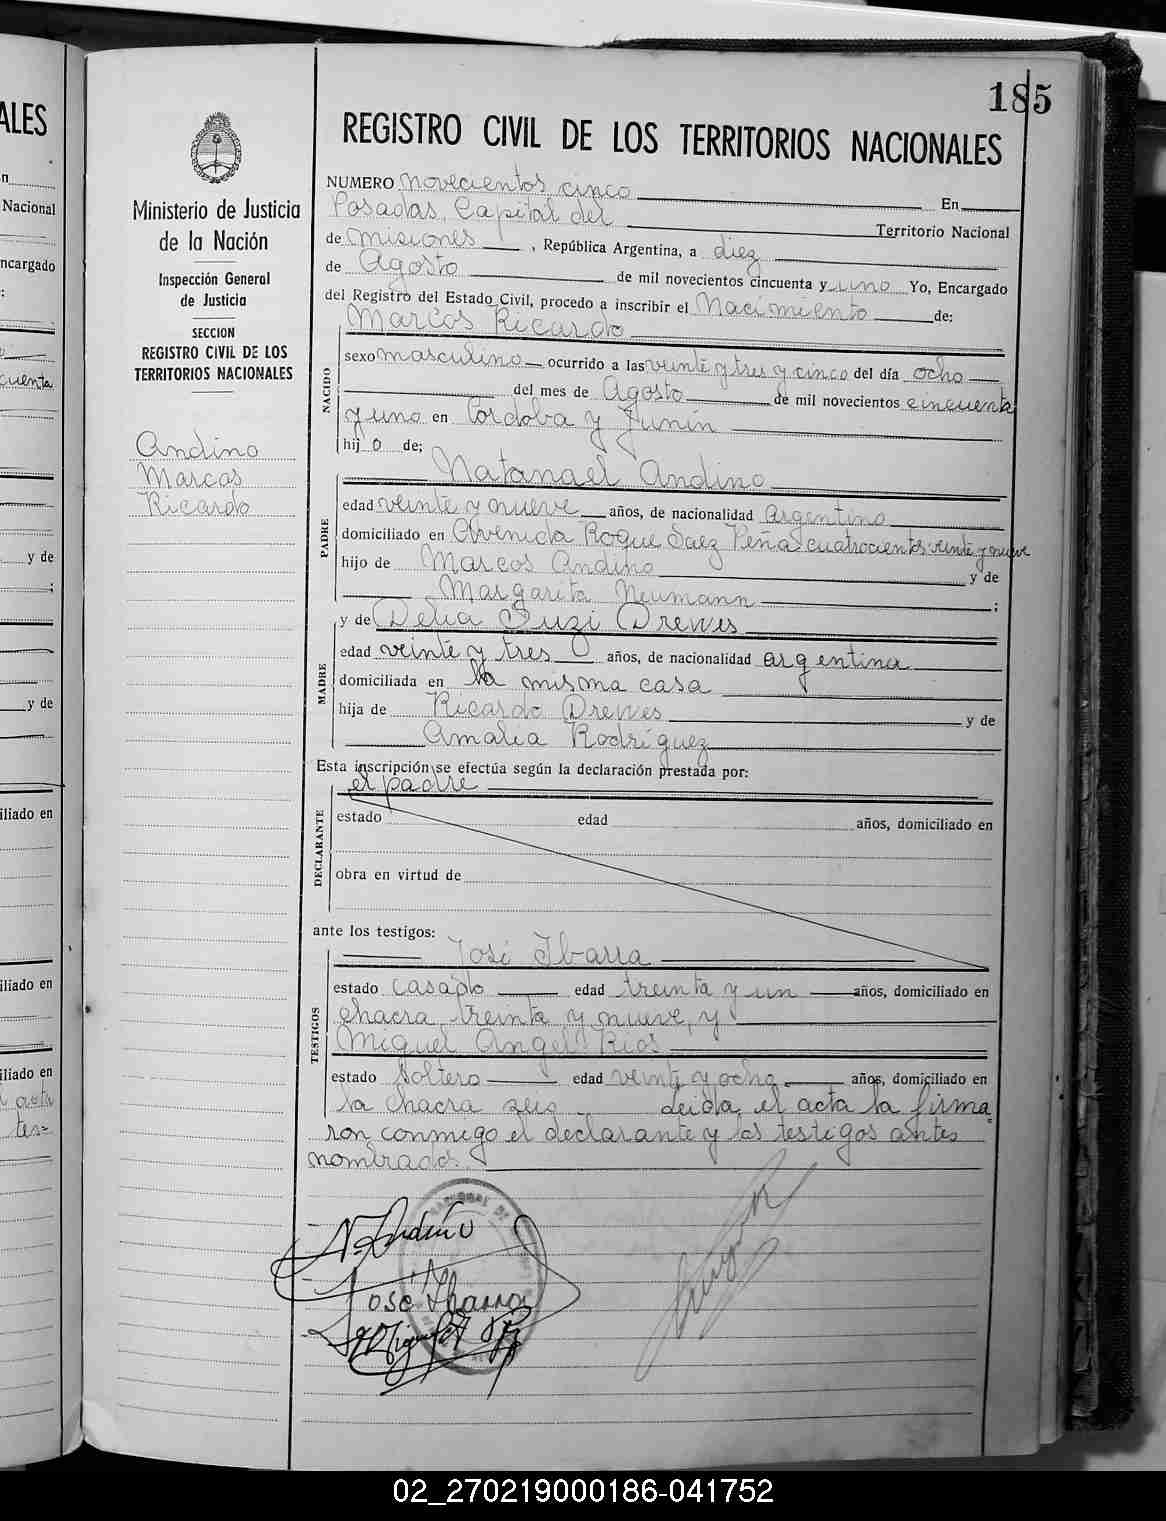 185
REGISTRO CIVIL DE LOS TERRITORIOS NACIONALES
Ministerio de Justicia
de la Nación
Inspección General
de Justicia
SECCION
REGISTRO CIVIL DE LOS
TERRITORIOS NACIONALES
Andino
Marcos
Ricardo
NUMERO novecientos cinco En
Posadas, Capital del Territorio Nacional
de Misiones, República Argentina, a diez
de Agosto de mil novecientos cincuenta y uno Yo, Encargado
del Registro del Estado Civil, procedo a inscribir el Nacimiento de:
Marcos Ricardo
NACIDO
sexo masculino ocurrido a las veinte y tres y cinco del día ocho
del mes de Agosto de mil novecientos cincuenta
y uno en Córdoba y Junín
hijo de;
Natanael Andino
PADRE
edad veinte y nueve años, de nacionalidad Argentino
domiciliado en Avenida Roque Saez Peña cuatrocientos veinte y nueve
hijo de Marcos Andino y de
Margarita Neumann;
y de Delia Suzi Drewes
MADRE
edad veinte y tres años, de nacionalidad argentina
domiciliada en la misma casa
hija de Ricardo Drewes y de
Amalia Rodríguez
Esta inscripción se efectúa según la declaración prestada por:
el padre
DECLARANTE
estado edad años, domiciliado en
obra en virtud de
ante los testigos:
José Ibarra
TESTIGOS
estado casado edad treinta y un años, domiciliado en
chacra treinta y nueve, y
Miguel Angel Rios
estado soltero edad veinte y ocho años, domiciliado en
la chacra seis Leida el acta la firma
ron conmigo el declarante y los testigos antes
nombrados.
N. Andino
José Ibarra
02_270219000186-041752
ALES
n
Nacional
ncargado
cuenta
y de
y de
iliado en
iliado en
iliado en